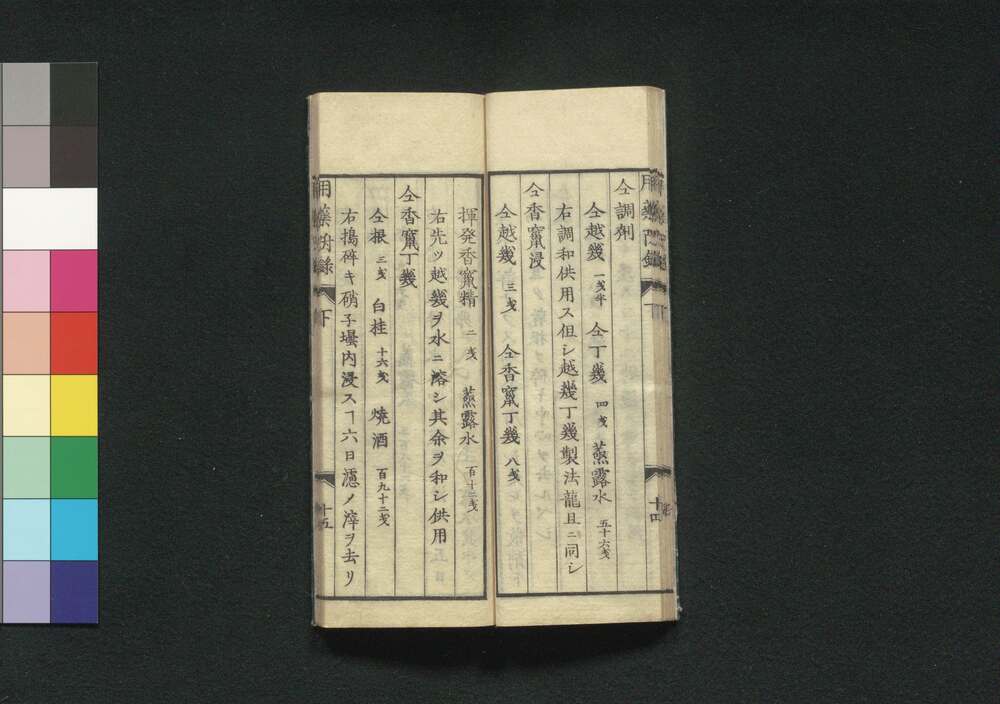 仝調劑
仝越幾 一戔半 仝丁幾 四戔 蒸露水 五十六戔
右調和供用ス但シ越幾丁幾製法龍且ニ同シ
仝香竄浸
仝越幾 三戔 仝香竄丁幾 八戔
揮発香竄精 二戔 蒸露水 百十二戔
右先ツ越幾ヲ水ニ溶シ其余ヲ和シ供用
仝香竄丁幾
仝根 三戔 白桂 十六戔 燒酒 百九十二戔
右搗碎キ硝子壜内浸スヿ六日濾ノ滓ヲ去リ
用藥 下 十五